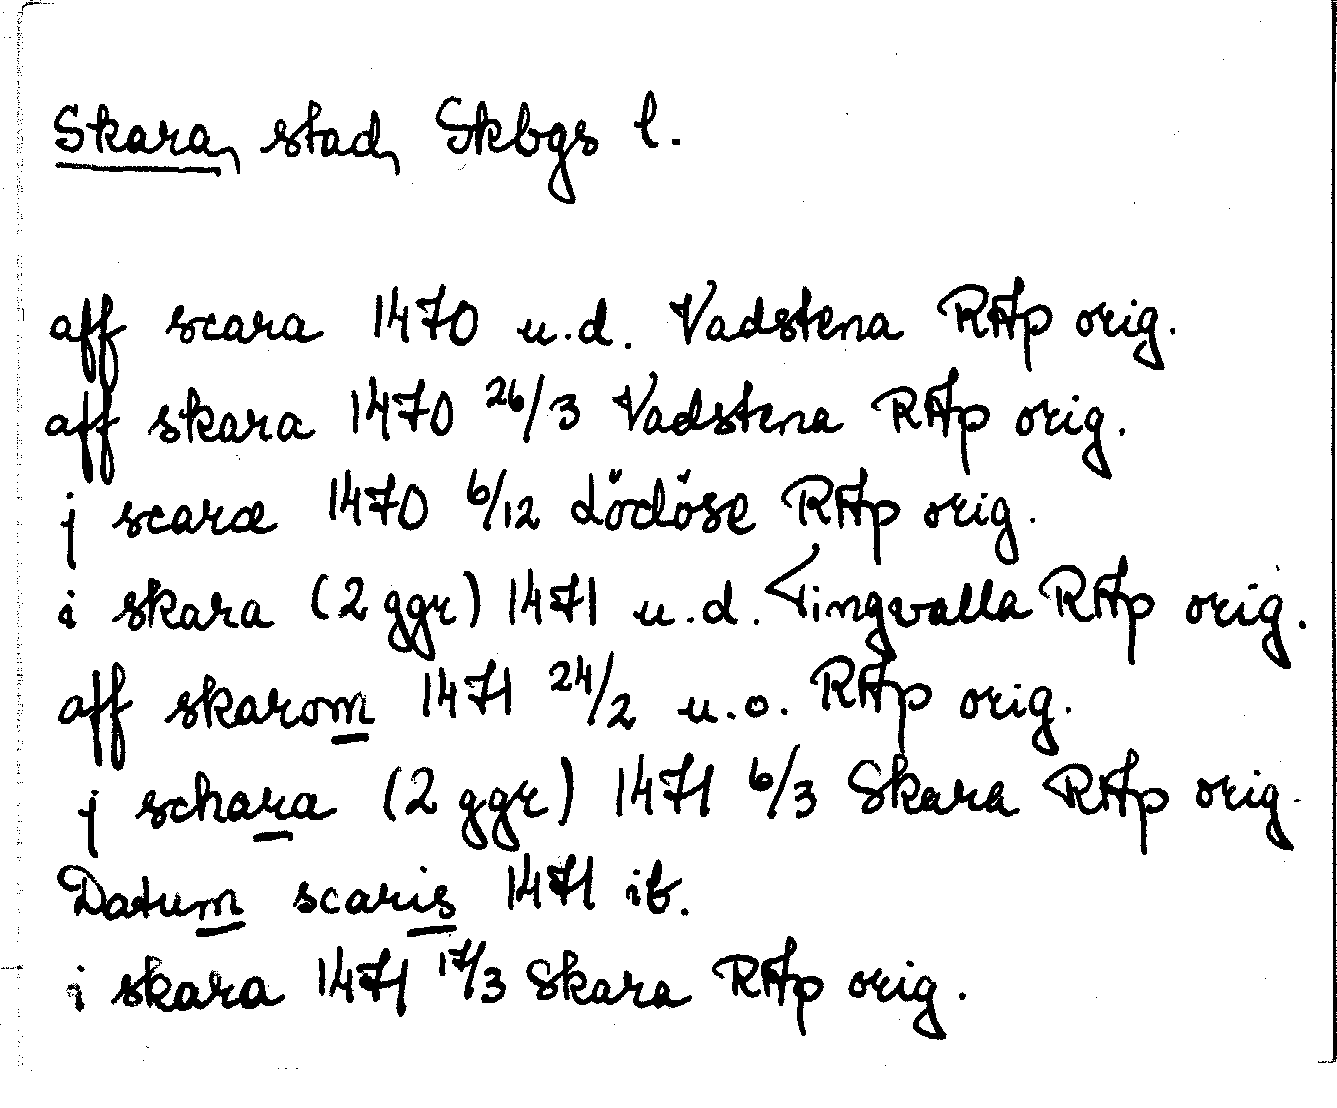 Skara, stad, Skbgs l.
aff scara 1470 u.d. Vadstena RAp orig.
aff skara 1470 26/3 Vadstena RAp orig.
j scaræ 1470 6/12 Lödöse RAp orig.
i skara (2 ggr) 1471 u.d. Tingvalla RAp orig.
aff skarom 1471 24/2 u.o. RAp orig.
j schara (2 ggr) 1471 6/3 Skara RAp orig.
Datum scaris 1471 ib.
i skara 1471 17/3 Skara RAp orig.